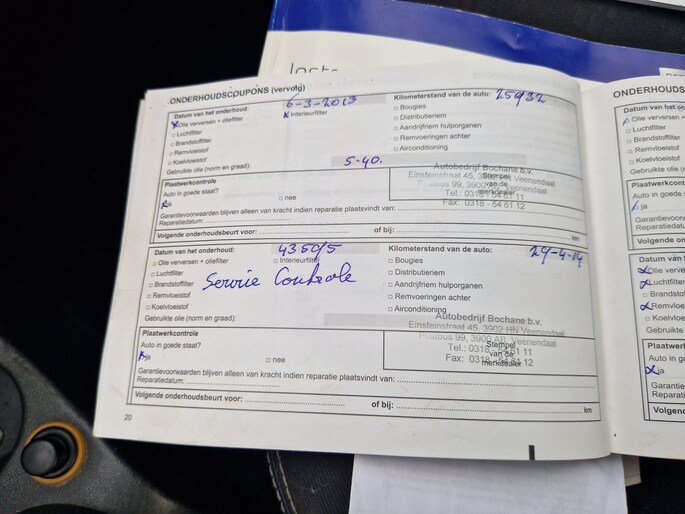 Insta
ONDERHOUDSCOUPONS (vervolg)
Datum van het onderhoud: 6-3-2013 Kilometerstand van de auto: 25932
Olie verversen + oliefilter Interieurfilter Bougies
Luchtfilter Distributieriem
Brandstoffilter Aandrijfriem hulporganen
Remvloeistof Remvoeringen achter
Koelvloeistof Airconditioning
Gebruikte olie (norm en graad): 5-40.
Autobedrijf Bochane b.v.
Einsteinstraat 45, 3902 HN Veenendaal
Postbus 99, 3900 AB Veenendaal
Tel.: 0318 - 54 61 11
Fax: 0318 - 54 61 12
Stempel
van de
merkdealer
Plaatwerkcontrole
Auto in goede staat?
ja nee
Garantievoorwaarden blijven alleen van kracht indien reparatie plaatsvindt van:
Reparatiedatum:
Volgende onderhoudsbeurt voor: of bij: km
Datum van het onderhoud: 43505 Kilometerstand van de auto: 29-4-14
Olie verversen + oliefilter Interieurfilter Bougies
Luchtfilter Service Controle Distributieriem
Brandstoffilter Aandrijfriem hulporganen
Remvloeistof Remvoeringen achter
Koelvloeistof Airconditioning
Gebruikte olie (norm en graad):
Autobedrijf Bochane b.v.
Einsteinstraat 45, 3902 HN Veenendaal
Postbus 99, 3900 AB Veenendaal
Tel.: 0318 - 54 61 11
Fax: 0318 - 54 61 12
Stempel
van de
merkdealer
Plaatwerkcontrole
Auto in goede staat?
ja nee
Garantievoorwaarden blijven alleen van kracht indien reparatie plaatsvindt van:
Reparatiedatum:
Volgende onderhoudsbeurt voor: of bij: km
20
ONDERHOUDSC
Datum van het on
Olie verversen +
Luchtfilter
Brandstoffilter
Remvloeistof
Koelvloeistof
Gebruikte olie (nor
Plaatwerkcont
Auto in goede st
ja
Garantievoorwaa
Reparatiedatum
Volgende on
Datum van h
Olie verver
Luchtfilter
Brandsto
Remvloei
Koelvloe
Gebruikte
Plaatwe
Auto in go
ja
Garantie
Reparati
Volgen